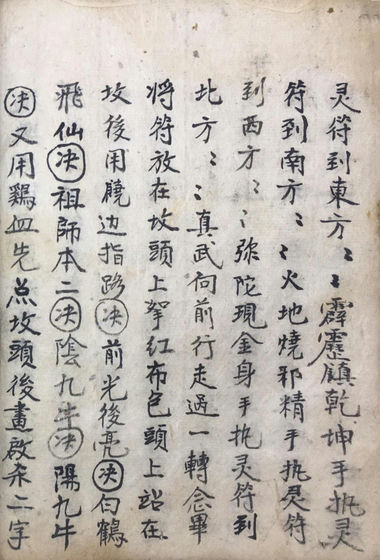 灵符到東方〻〻霹靂鎮乾坤手执灵
符到南方〻〻火地燒邪精手执灵符
到西方〻〻弥陀現金身手执灵符到
北方〻〻真武向前行走過一轉念畢
将符放在坟頭上拏红布包頭上站在
坟後用騐边指路决前光後亮决白鶴
飛仙决祖師本二决陰九牛决陽九牛
决又用鷄血先点坟頭後畫啟杀二字